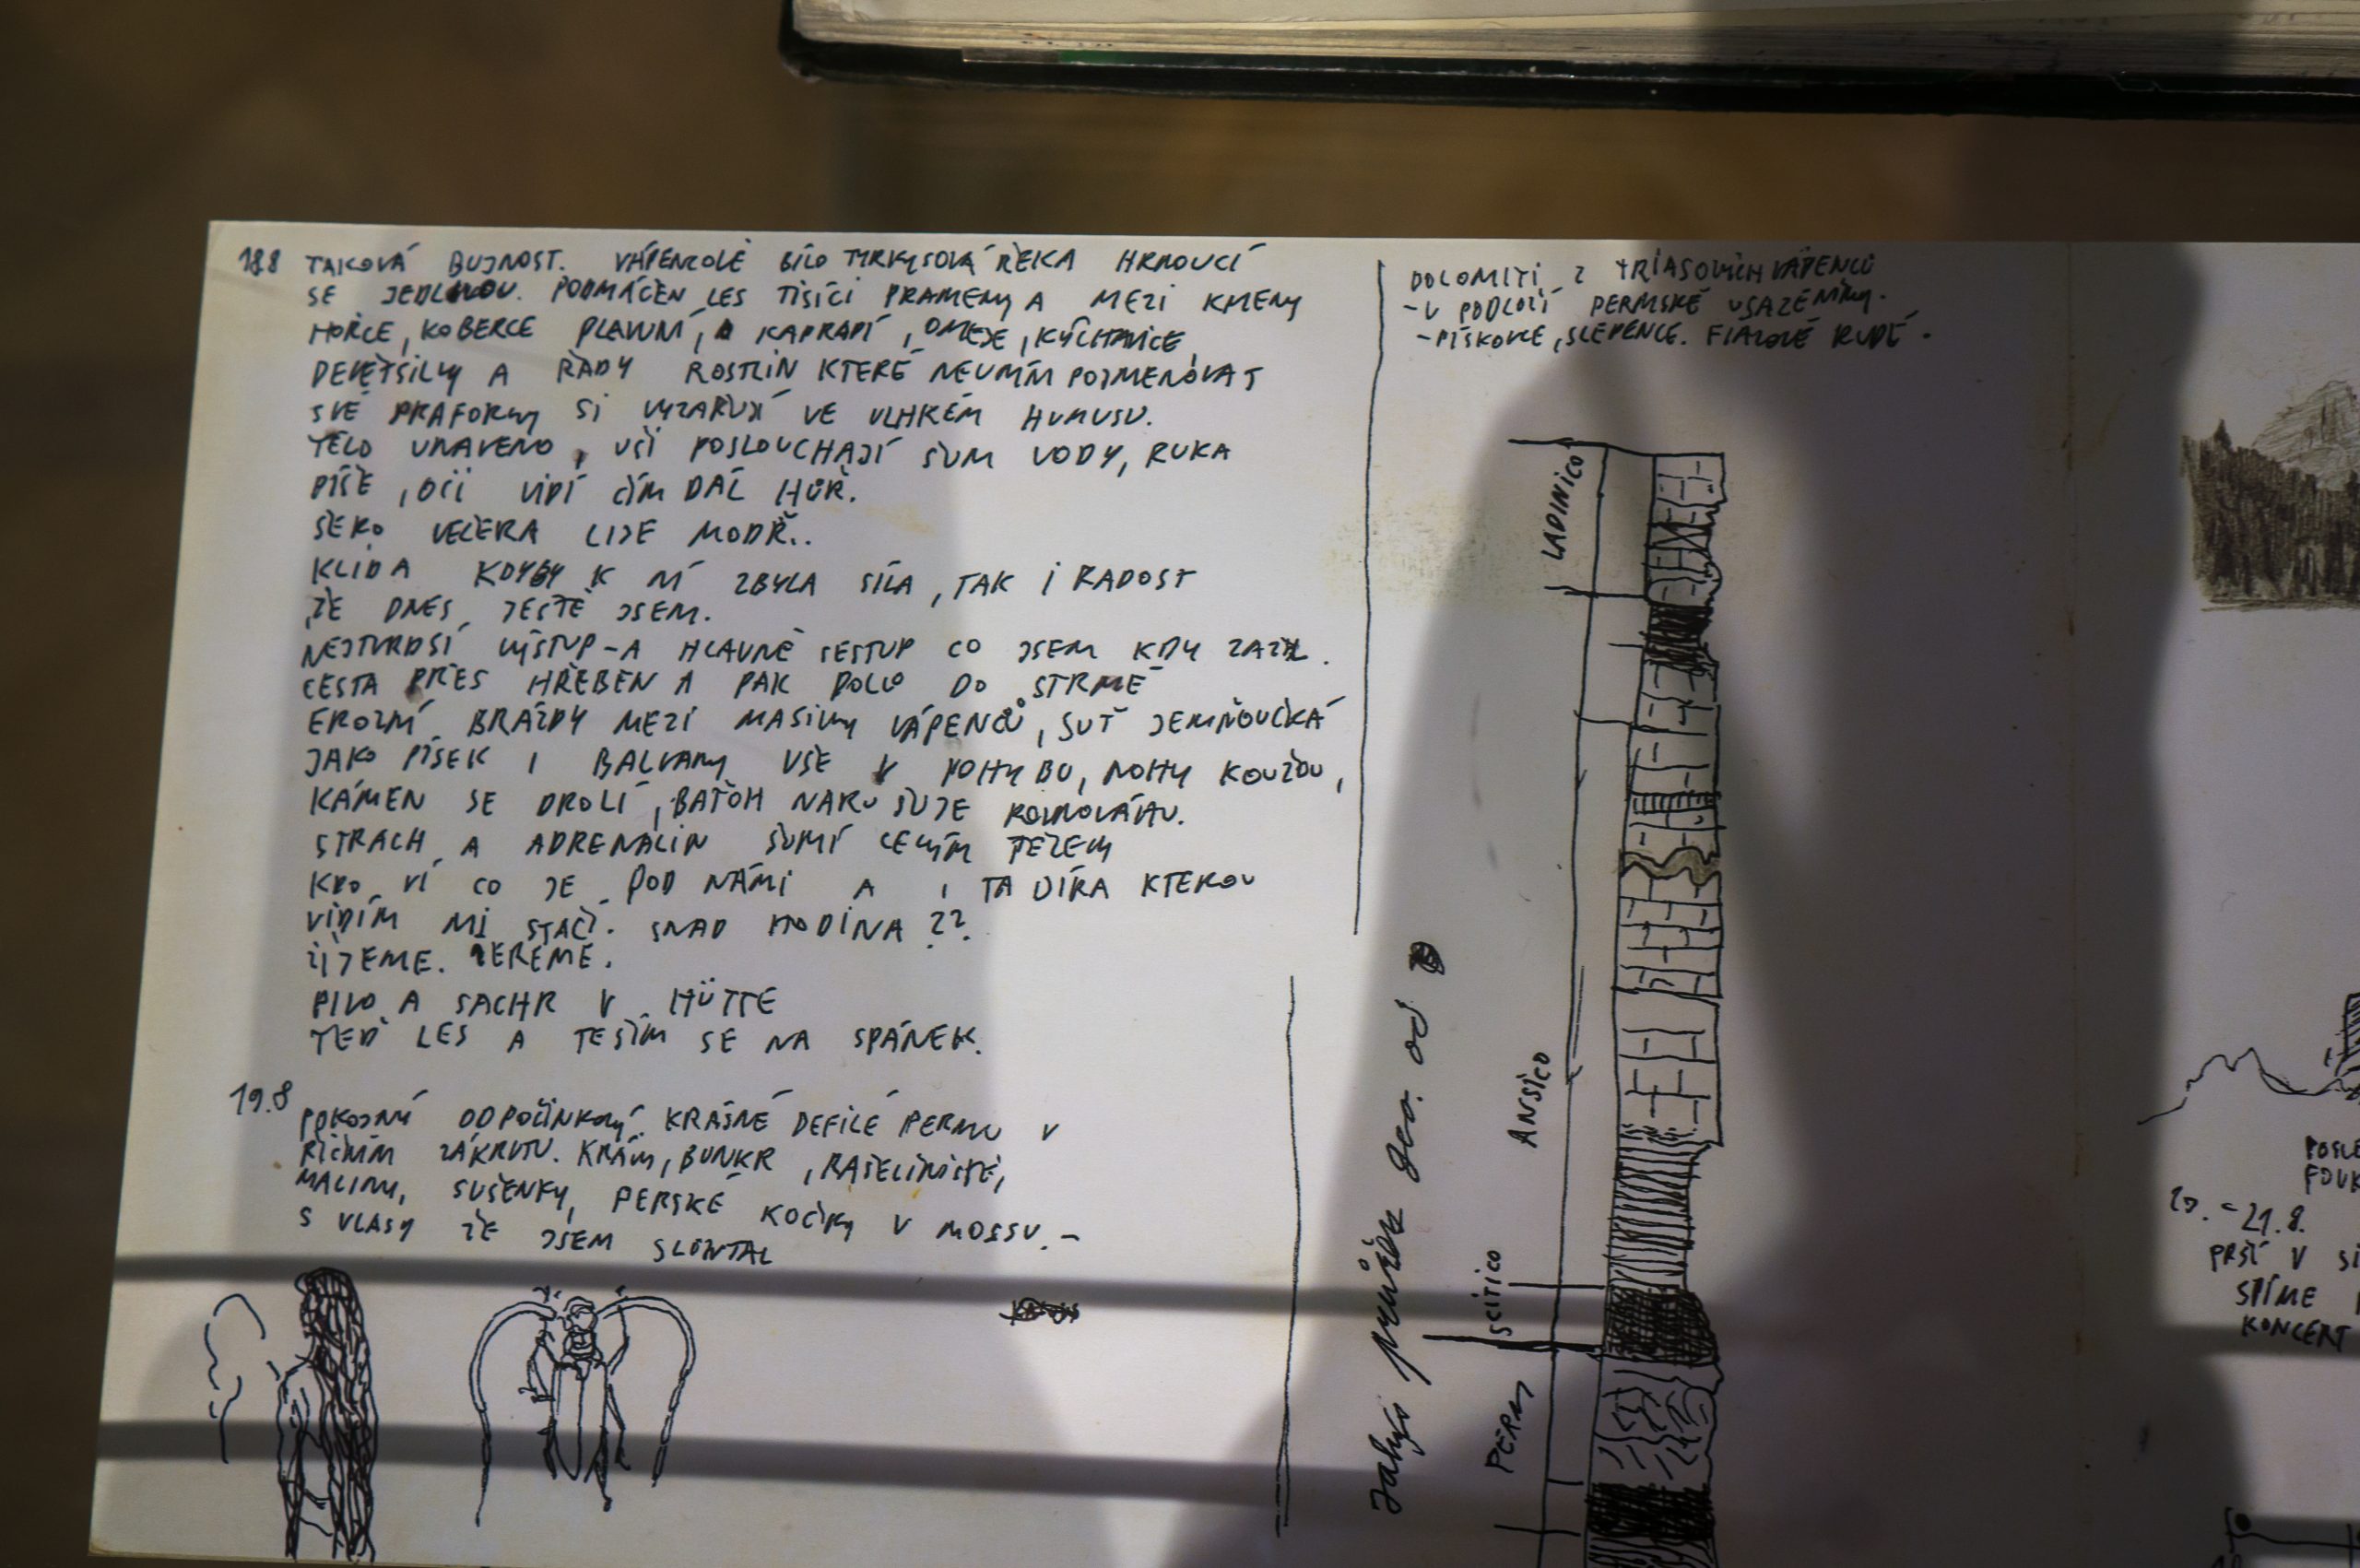 18.8 TAKOVÁ BUJNOST. VÁPENCOVĚ BÍLO TYRKYSOVÁ ŘEKA HRNOUCÍ
SE JEDLINOU. PODMÁČEN LES TISÍCI PRAMENY A MEZI KMENY
HOŘCE, KOBERCE PLAVUNÍ, KAPRADÍ, OMĚJE, KÝCHAVICE
DEVĚTSILY A ŘADY ROSTLIN KTERÉ NEUMÍM POJMENOVAT
SVÉ PRAFORMY SI VYZAŘUJÍ VE VLHKÉM HUMUSU.
TĚLO UNAVENO, UŠI POSLOUCHAJÍ ŠUM VODY, RUKA
PÍŠE, OČI VIDÍ ČÍM DÁL HŮŘ.
ŠERO VEČERA LIJE MODŘ..
KLIDA KDYBY K NÍ ZBYLA SÍLA, TAK I RADOST
ŽE DNES JEŠTĚ JSEM.
NEJTVRDŠÍ VÝSTUP - A HLAVNĚ SESTUP CO JSEM KDY ZAŽIL.
CESTA PŘES HŘEBEN A PAK DOLŮ DO STRMÉ
EROZNÍ BRÁZDY MEZI MASIVY VÁPENCŮ, SUŤ JEMŇOUČKÁ
JAKO PÍSEK I BALVANY VŠE V POHYBU, NOHY KLOUŽOU,
KÁMEN SE DROLÍ, BAŤOH NARUŠUJE ROVNOVÁHU.
STRACH A ADRENALIN ŠUMÍ CELÝM TĚLEM
KDO VÍ CO JE POD NÁMI A I TA DÍRA KTEROU
VIDÍM MI STAČÍ. SNAD HODINA ??.
ŽIJEME. ŽEREME.
PIVO A SACHR V HÜTTE
TEĎ LES A TĚŠÍM SE NA SPÁNEK.
19.8 POKOJNÝ ODPOČINKOVÝ. KRÁSNÉ DEFILÉ PERMU V
ŘÍČNÍM ZÁKRUTU. KRÁM, BUNKR, RAŠELINIŠTĚ,
MALINY, SUŠENKY, PERSKÉ KOČIKY V MOSSU. -
S VLASY ŽE JSEM
DOLOMITI Z TRIASOVÝCH VÁPENCŮ
- V PODLOŽÍ PERMSKÉ USAZENINY.
- PÍSKOVCE, SLEPENCE. FIALOVĚ RUDÉ.
LADINICO
ANSICO
SCITICO
PERM
Jakýs průřez geo. od
POSLE
FOUK
20. - 21.8.
PRŠÍ V
SPÍME
KONCERT